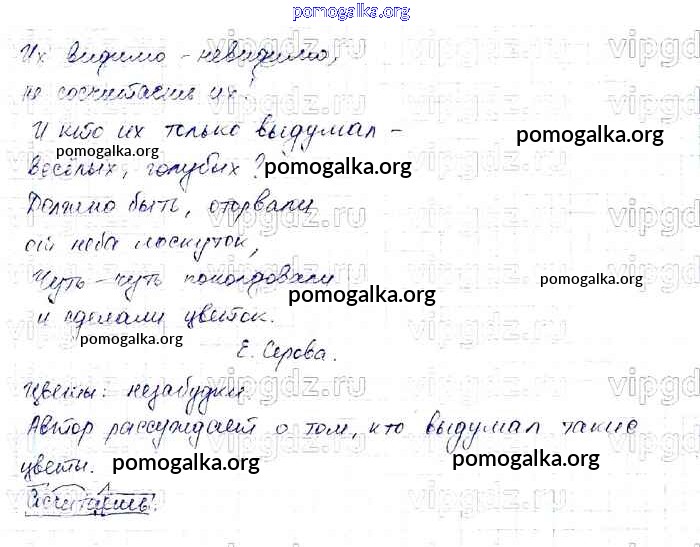 pomogalka.org
Их видимо-невидимо,
не сосчитаешь их!
И кто их только выдумал -
pomogalka.org
pomogalka.org
весёлых, голубых?
pomogalka.org
Должно быть, оторвали
от неба лоскуток,
Чуть-чуть поколдовали
pomogalka.org
pomogalka.org
и сделали цветок.
pomogalka.org
Е. Серова.
Цветы: незабудки.
Автор рассуждает о том, кто выдумал такие
цветы.
pomogalka.org
pomogalka.org
Сосчитаешь.
vipgdz.ru
vipgdz.ru
vipgdz.ru
vipgdz.ru
vipgdz.ru
vipgdz.ru